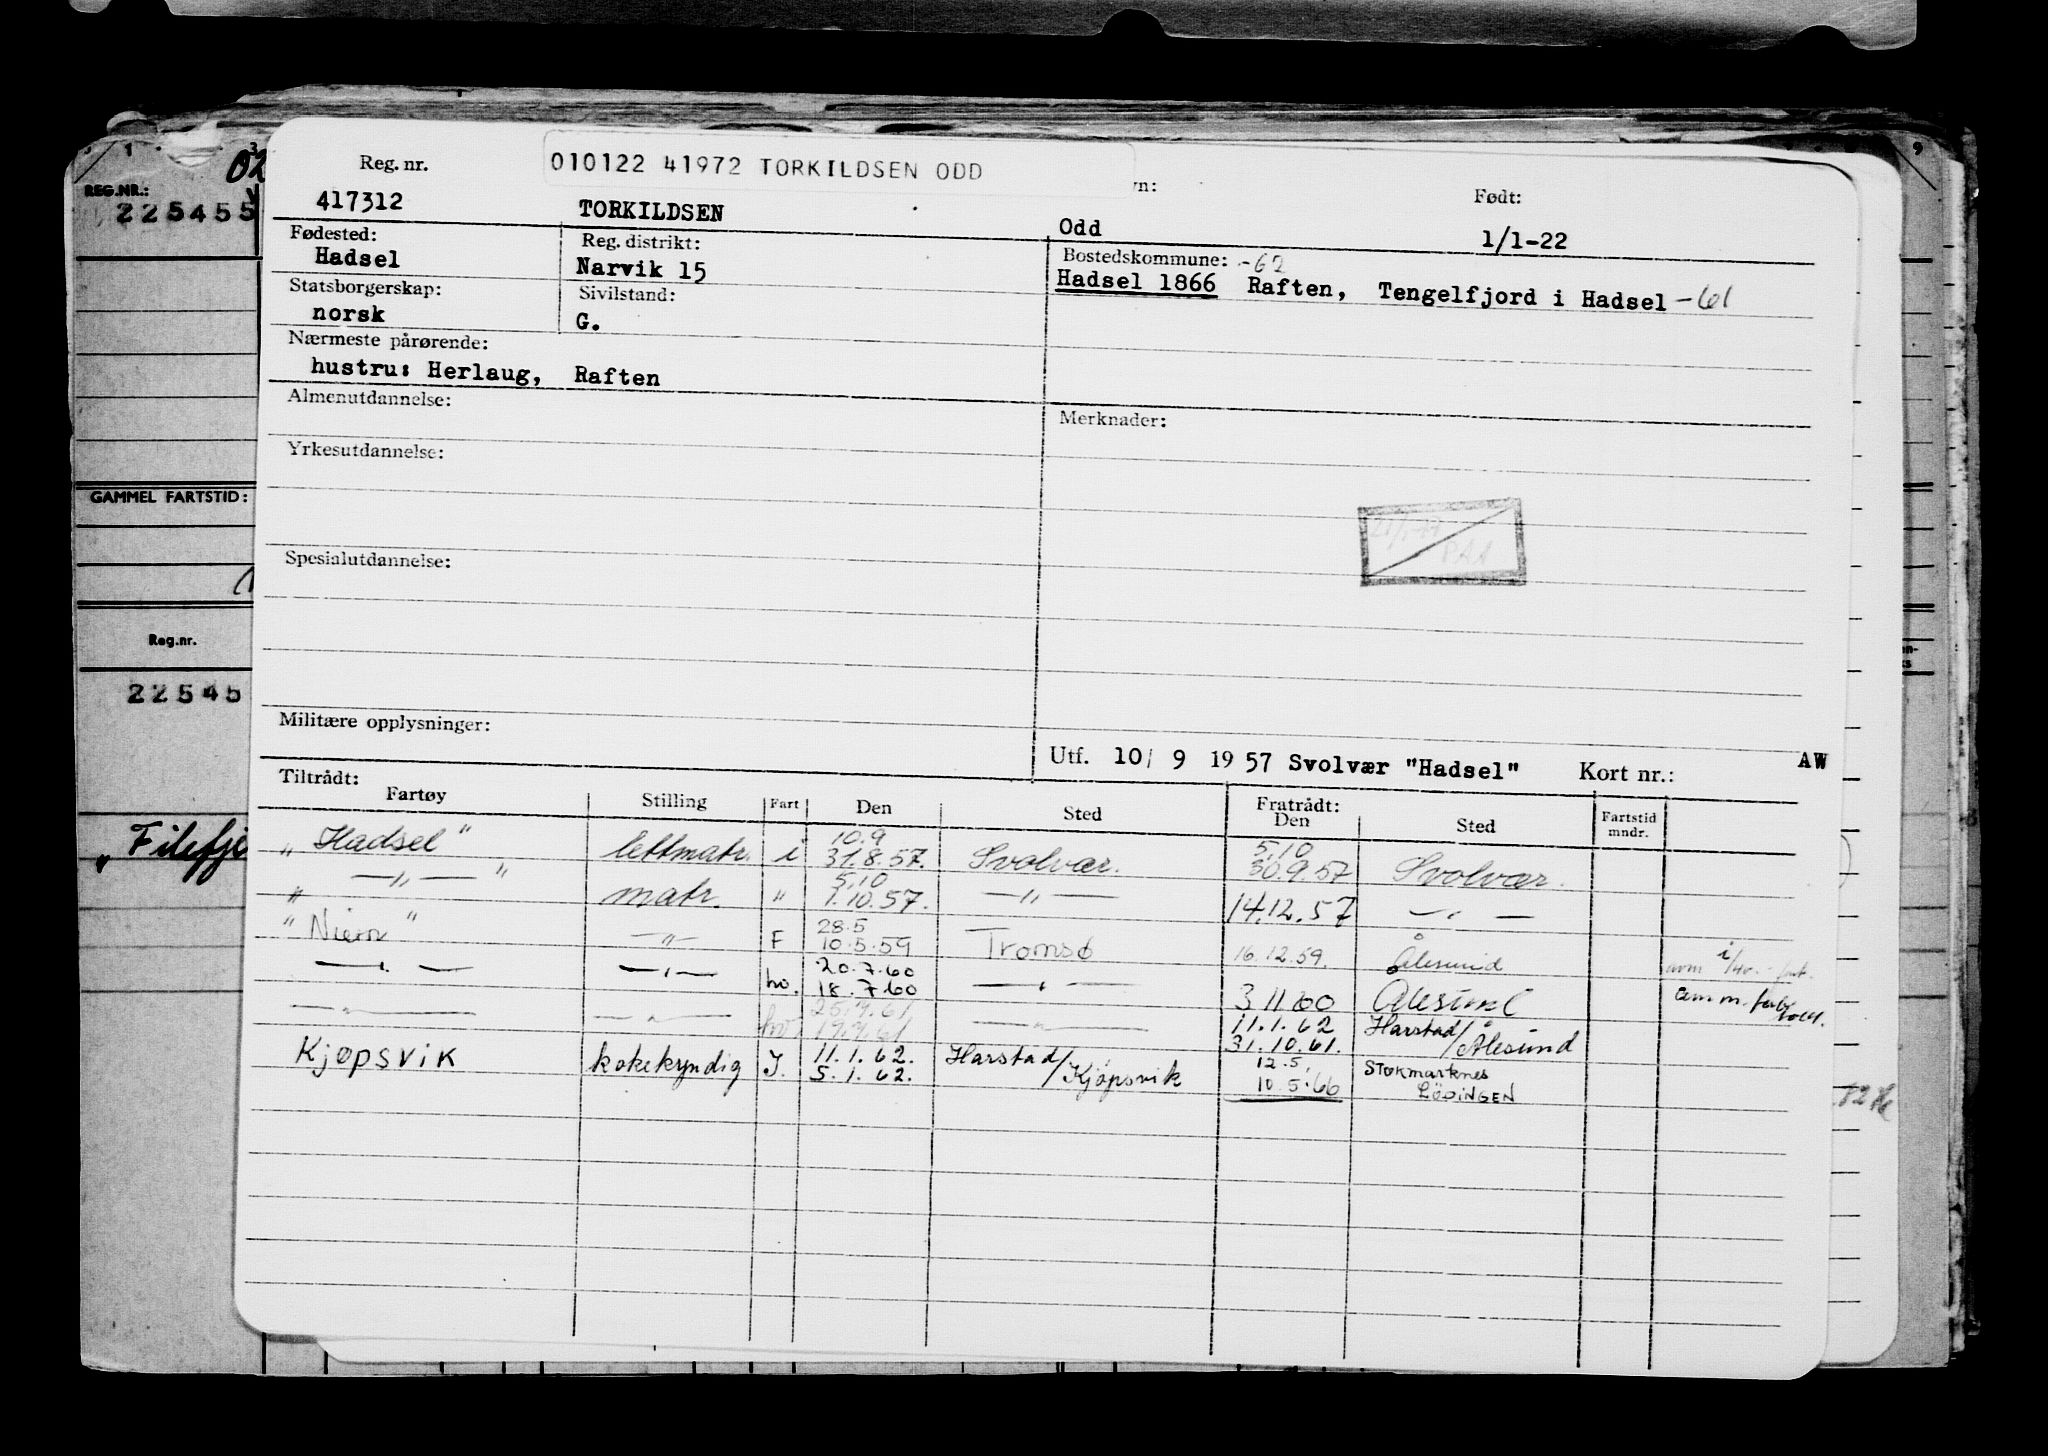 010122 41972 TORKILDSEN ODD
Reg. nr. Født:
417312 TORKILDSEN Odd 1/1-22
Fødested: Reg. distrikt: Bostedskommune: -62
Hadsel Narvik 15 Hadsel 1866 Raften, Tengelfjord i Hadsel -61
Statsborgerskap: Sivilstand:
norsk G.
Nærmeste pårørende:
hustru: Herlaug, Raften
Almenutdannelse: Merknader:
Yrkesutdannelse:
Spesialutdannelse:
Militære opplysninger:
Utf. 10/ 9 1957 Svolvær "Hadsel" Kort nr.: AW
Tiltrådt: Fratrådt:
Fartøy Stilling Fart Den Sted Den Sted Fartstid mndr.
10.9 5.10
"Hadsel" lettmatr. i 31.8.57. Svolvær. 30.9.57 Svolvær.
5.10
" —„— " matr. " 1.10.57. —„— 14.12.57 —„—
28.5
—„— F 10.5.59 Tromsø 16.12.59. Ålesund
20.7.60
—„— —„— 18.7.60 —„— 3.11.60 Ålesund
11.1.62 Harstad/
—„— —„— —„— 31.10.61. Ålesund
11.1.62. Harstad/ 12.5. Stokmarknes
Kjøpsvik kokekyndig I. 5.1.62. Kjøpsvik 10.5.66 LÖDINGEN
REG.NR.:
225455
GAMMEL FARTSTID:
Reg.nr.
22545
"Filefje